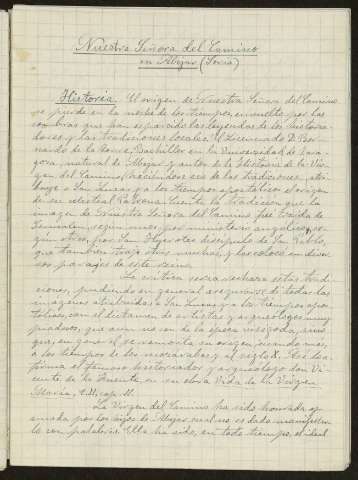 Nuestra Señora del Camino
en Abejar (Soria)
Historia. El origen de Nuestra Señora del Camino
se pierde en la noche de los tiempos, envuelto por las
sombras que han esparcido las leyendas de los historia-
dores y las tradiciones locales. El licenciado D. Ber-
nardo de la Torre, Bachiller en la Universidad de Zara-
goza, natural de Abejar y autor de la Historia de la Vir-
gen del Camino, haciéndose eco de las tradiciones, atri-
buye a San Lucas y a los tiempos apostólicos el origen
de su celestial Patrona. Cuenta la tradición que la
imagen de Nuestra Señora del Camino fué traida de
Jerusalen, según unos, por ministerio angélico, se-
gún otros, por San Hieroteo discípulo de San Pablo,
que también trajo otras muchas, y las colocó en diver-
sos parajes de este reino.
La crítica seria rechaza estas tradi-
ciones, pudiendo en general asegurarse de todas las
imágenes atribuidas a San Lucas y a los tiempos apos-
tólicos, con el dictamen de artistas y arqueólogos muy
piadosos, que aún no son de la época visigoda, sino
que, en general se remonta su origen, cuando más,
a los tiempos de los mozárabes y al siglo X. Así lo a-
firma el famoso historiador y arqueólogo don Vi-
cente de la Fuente en su obra Vida de la Virgen
María, t. II, cap. II.
La Virgen del Camino ha sido honrada y
amada por los hijos de Abejar cual no es dado manifestar-
lo con palabras. Ella ha sido, en todo tiempo, el ideal